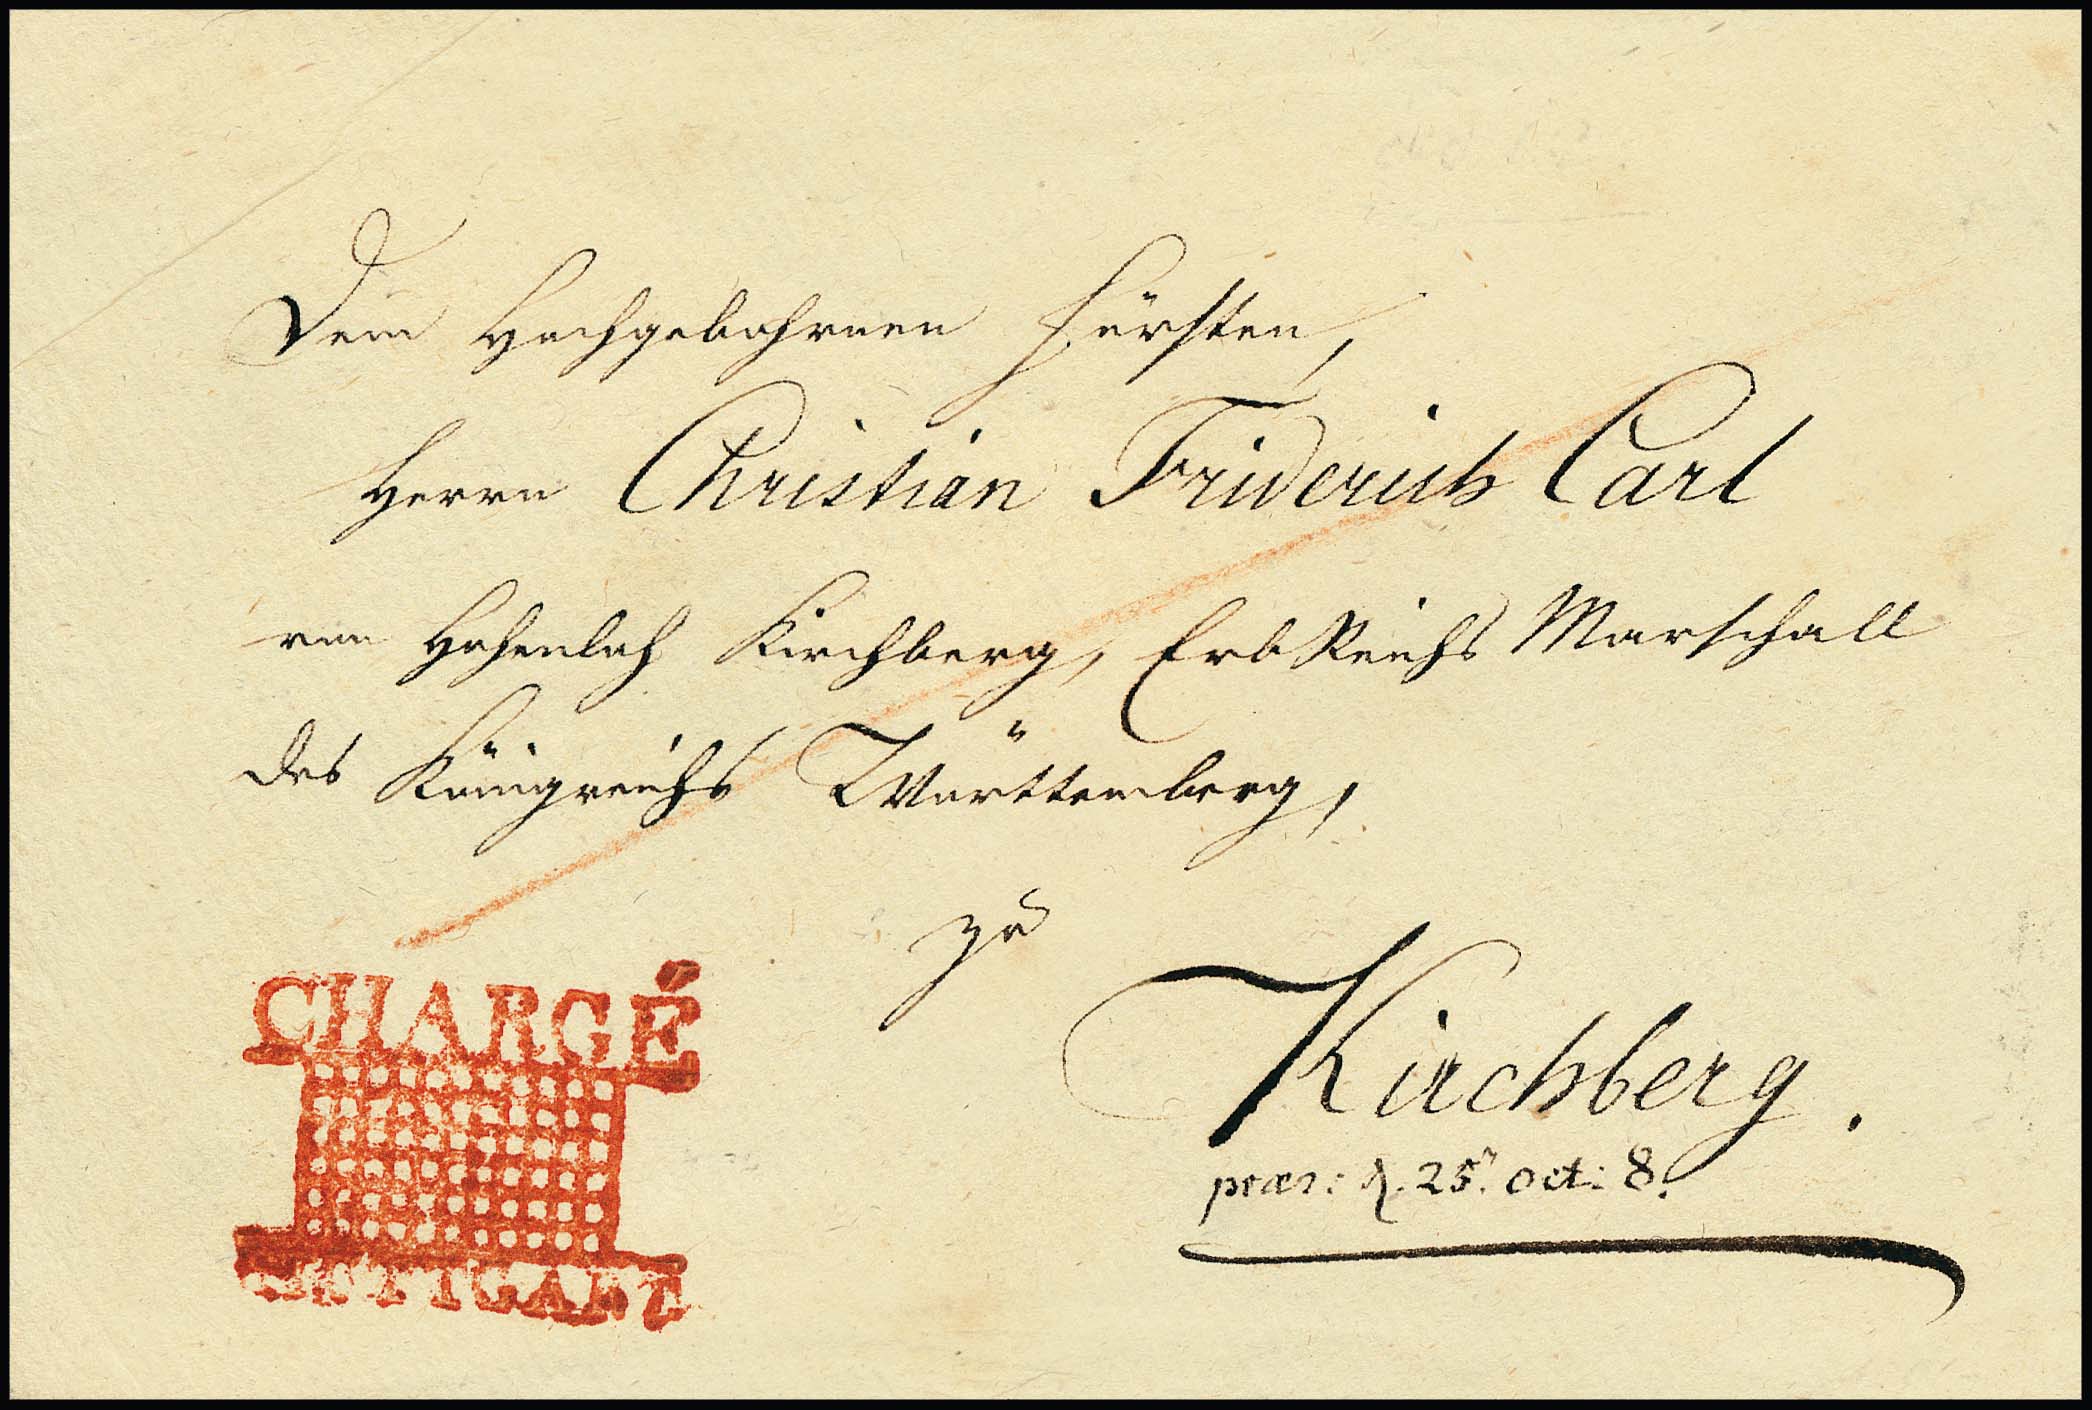 Dem Hochgebohrnen Fürsten,
Herrn Christian Friderich Carl
von Hohenloh Kirchberg, Erb Reichs Marschall
des Königreichs Württemberg,
zu
Kirchberg.
præs: d. 25. oct: 8.
CHARGÉ
STUTTGART